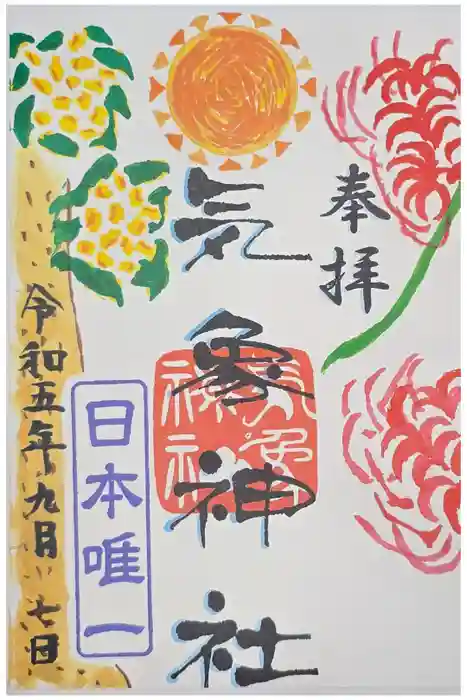 奉拝
気象神社
気象神社
日本唯一
令和五年九月七日